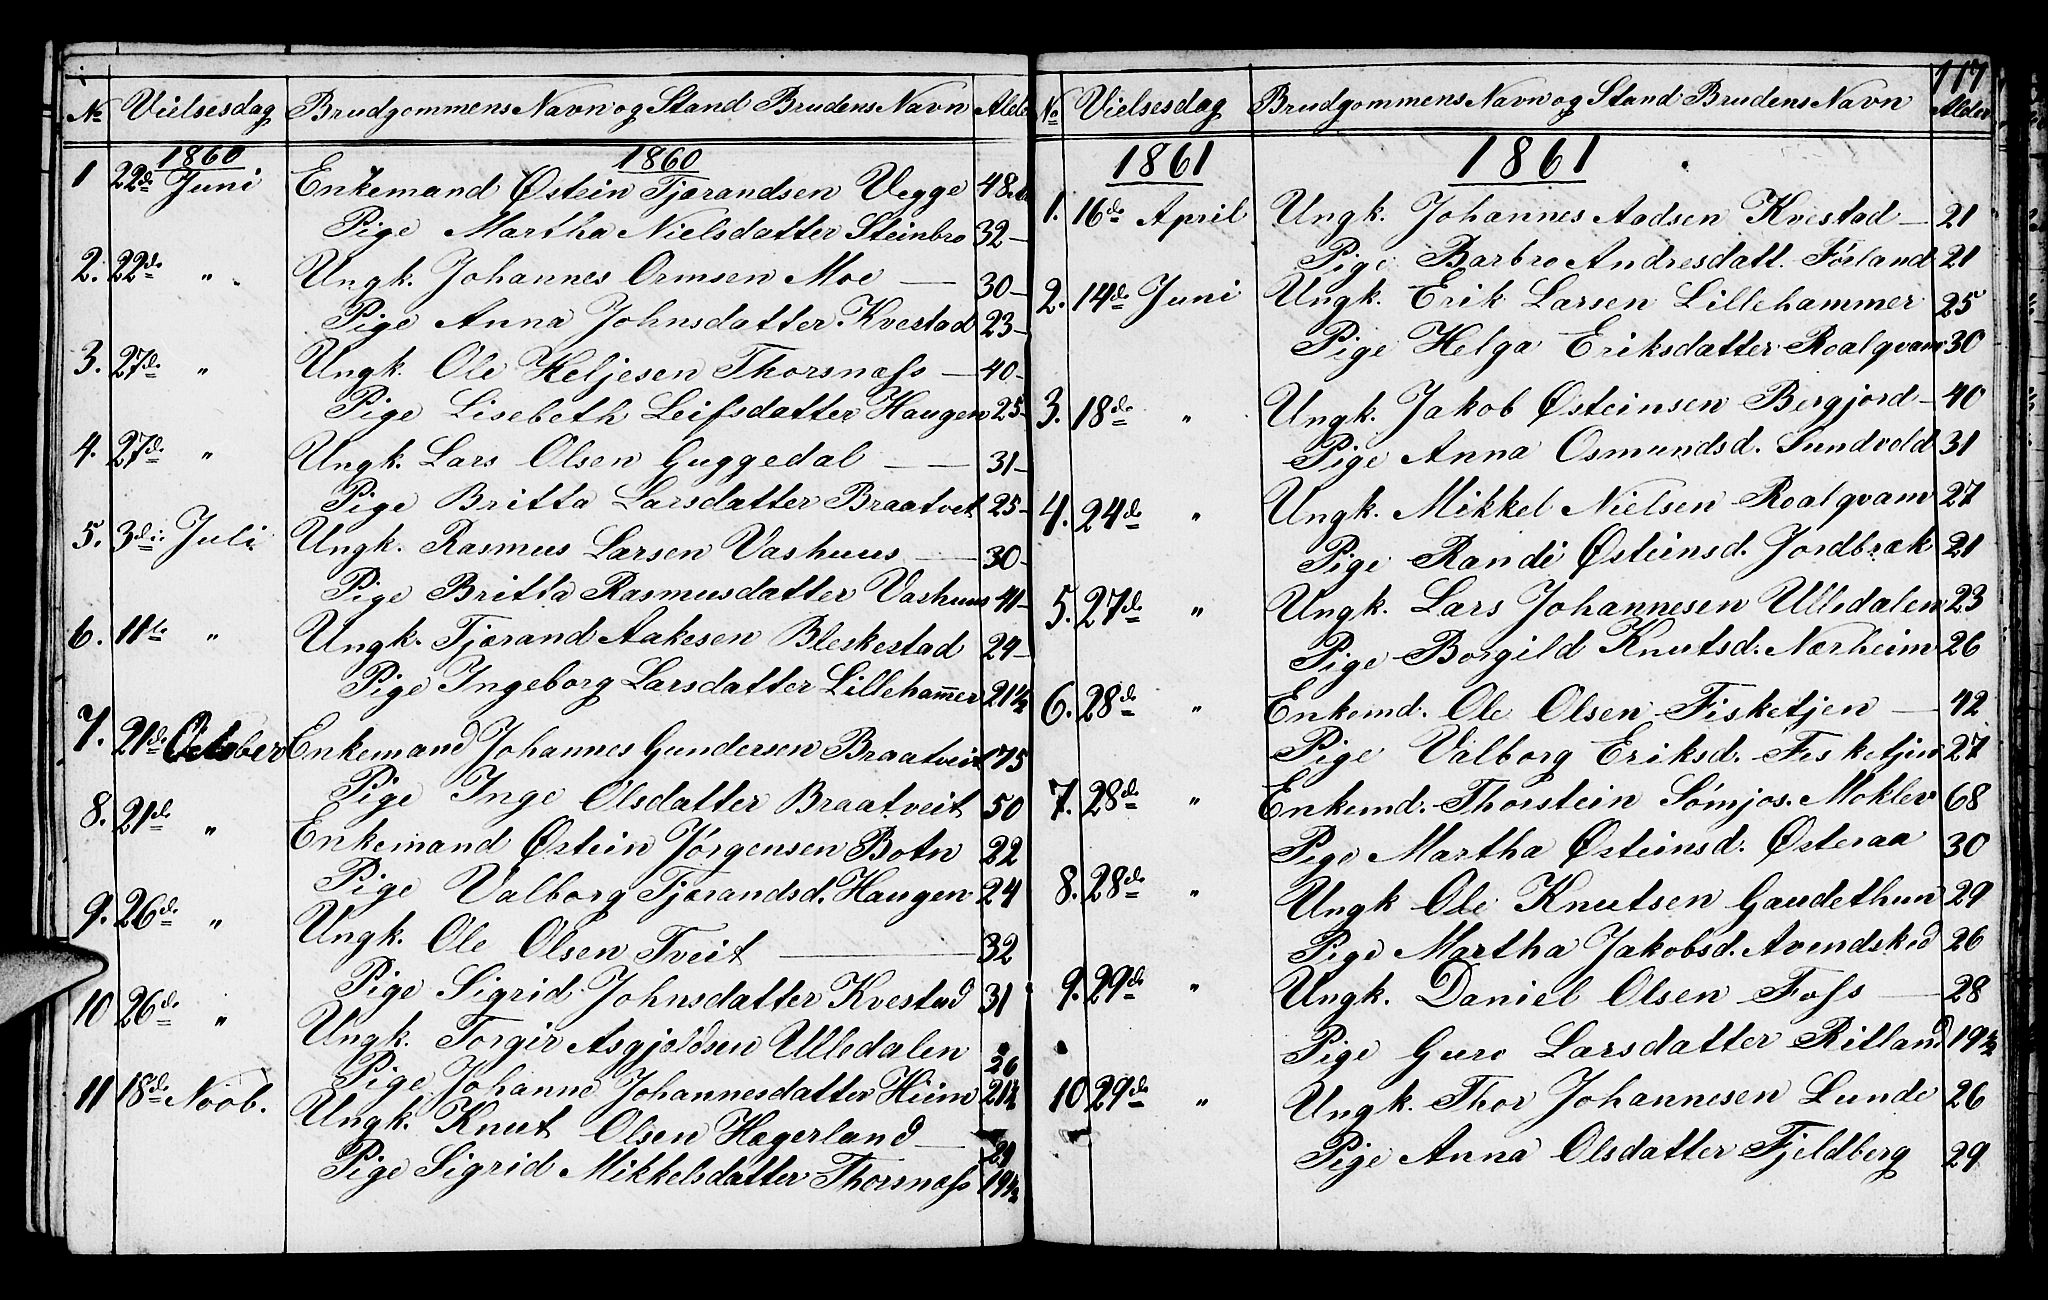 No Vielsesdag Brudgommens Navn og Stand Brudens Navn Alder
1860 1860
1 22de Juni Enkemand Østein Tjærandsen Vegge 48
Pige Martha Nielsdatter Steinbro 32
2. 22de " Ungk. Johannes Ormsen Moe — 30
Pige Anna Johnsdatter Kvestad 23
3. 27de " Ungk. Ole Heljesen Thorsnæss — 40
Pige Lisebeth Leifsdatter Haugen 25
4. 27de " Ungk. Lars Olsen Guggedal — 31
Pige Britta Larsdatter Braatveit 25
5. 3die Juli Ungk. Rasmus Larsen Vashuus — 30
Pige Britta Rasmusdatter Vashuus 41
6. 11te " Ungk. Tjærand Aakesen Bleskestad 29
Pige Ingeborg Larsdatter Lillehammer 21½
7. 21de October Enkemand Johannes Gundersen Braatveit 75
Pige Inge Olsdatter Braatveit 50
8. 21de " Enkemand Østein Jørgensen Botn 22
Pige Valborg Tjærandsd. Haugen 24
9. 26de " Ungk. Ole Olsen Tveit — 32
Pige Sigrid Johnsdatter Kvestad 31
10 26de " Ungk. Torgir Asgjeldsen Ulledalen 26
Pige Johanne Johannesdatter Hiim 21½
11 18de Novb. Ungk. Knut Olsen Hægerland — 29
Pige Sigrid Mikkelsdatter Thorsnæss 19½
117
No Vielsesdag Brudgommens Navn og Stand Brudens Navn Alder
1861 1861
1. 16de April Ungk. Johannes Aadsen Kvestad — 21
Pige Barbro Andresdatt. Førland 21
2. 14de Juni Ungk. Erik Larsen Lillehammer 25
Pige Helga Eriksdatter Roalqvam 30
3. 18de " Ungk. Jakob Østeinsen Bergjord — 40
Pige Anna Osmundsd. Sundvold 31
4. 24de " Ungk. Mikkel Nielsen Roalqvam 27
Pige Randi Østeinsd. Jordbræk 21
5. 27de " Ungk. Lars Johannesen Ulledalen 23
Pige Borgild Knutsd. Nærheim 26
6. 28de " Enkemd. Ole Olsen Fisketjen — 42
Pige Valborg Eriksd. Fisketjen 27
7. 28de " Enkemd. Thorstein Sømjos. Moklev 68
Pige Martha Østeinsd. Østeraa 30
8. 28de " Ungk Ole Knutsen Gaudethun 29
Pige Martha Jakobsd. Avendsked 26
9. 29de " Ungk. Daniel Olsen Foss — 28
Pige Guro Larsdatter Ritland 19½
10 29de " Ungk. Thor Johannesen Lunde 26
Pige Anna Olsdatter Fjeldberg 29